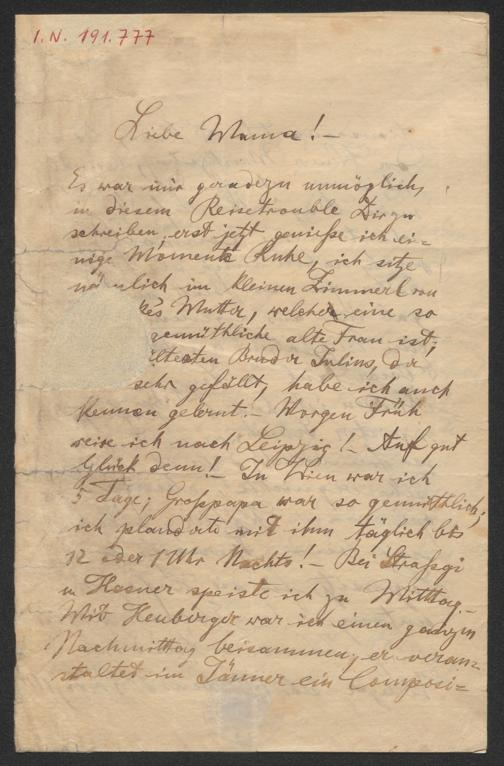 I. N. 191.777
Liebe Mama! –
Es war mir geradezu unmöglich,
in diesem Reisetrouble Dir zu
schreiben, erst jetzt genieße ich ei=
nige Momente Ruhe, ich sitze
nämlich im kleinen Zimmerl von
kés Mutter, welche eine so
gemüthliche alte Frau ist,
ältesten Bruder Julius, der
sehr gefällt, habe ich auch
kennen gelernt. – Morgen Früh
reise ich nach Leipzig! – Auf gut
Glück denn! – In Wien war ich
5 Tage; Großpapa war so gemüthlich,
ich plauderte mit ihm täglich bis
12 oder 1 Uhr Nachts! – Bei
u. Hasner speiste ich zu Mitttag. –
Mit Heuberger war ich einen ganzen
Nachmittag beisammen, er veran=
staltet im Jänner ein Composi=